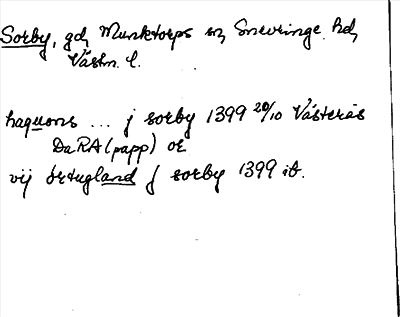 Sorby, gd, Munktorps sn, Snevringe hd,
Västm. l.
haquons ... j sorby 1399 20/10 Västerås
DaRA (papp) or
vij örtugland j sorby 1399 ib.